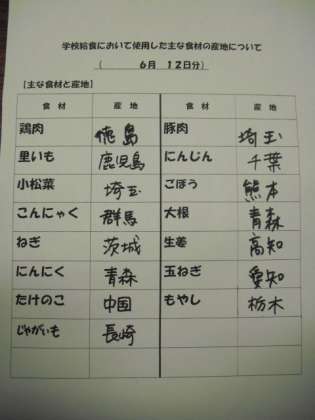 学校給食において使用した主な食材の産地について
( 6月 12日分)
[主な食材と産地]
食材 産地 食材 産地
鶏肉 徳島 豚肉 埼玉
里いも 鹿児島 にんじん 千葉
小松菜 埼玉 ごぼう 熊本
こんにゃく 群馬 大根 青森
ねぎ 茨城 生姜 高知
にんにく 青森 玉ねぎ 愛知
たけのこ 中国 もやし 栃木
じゃがいも 長崎